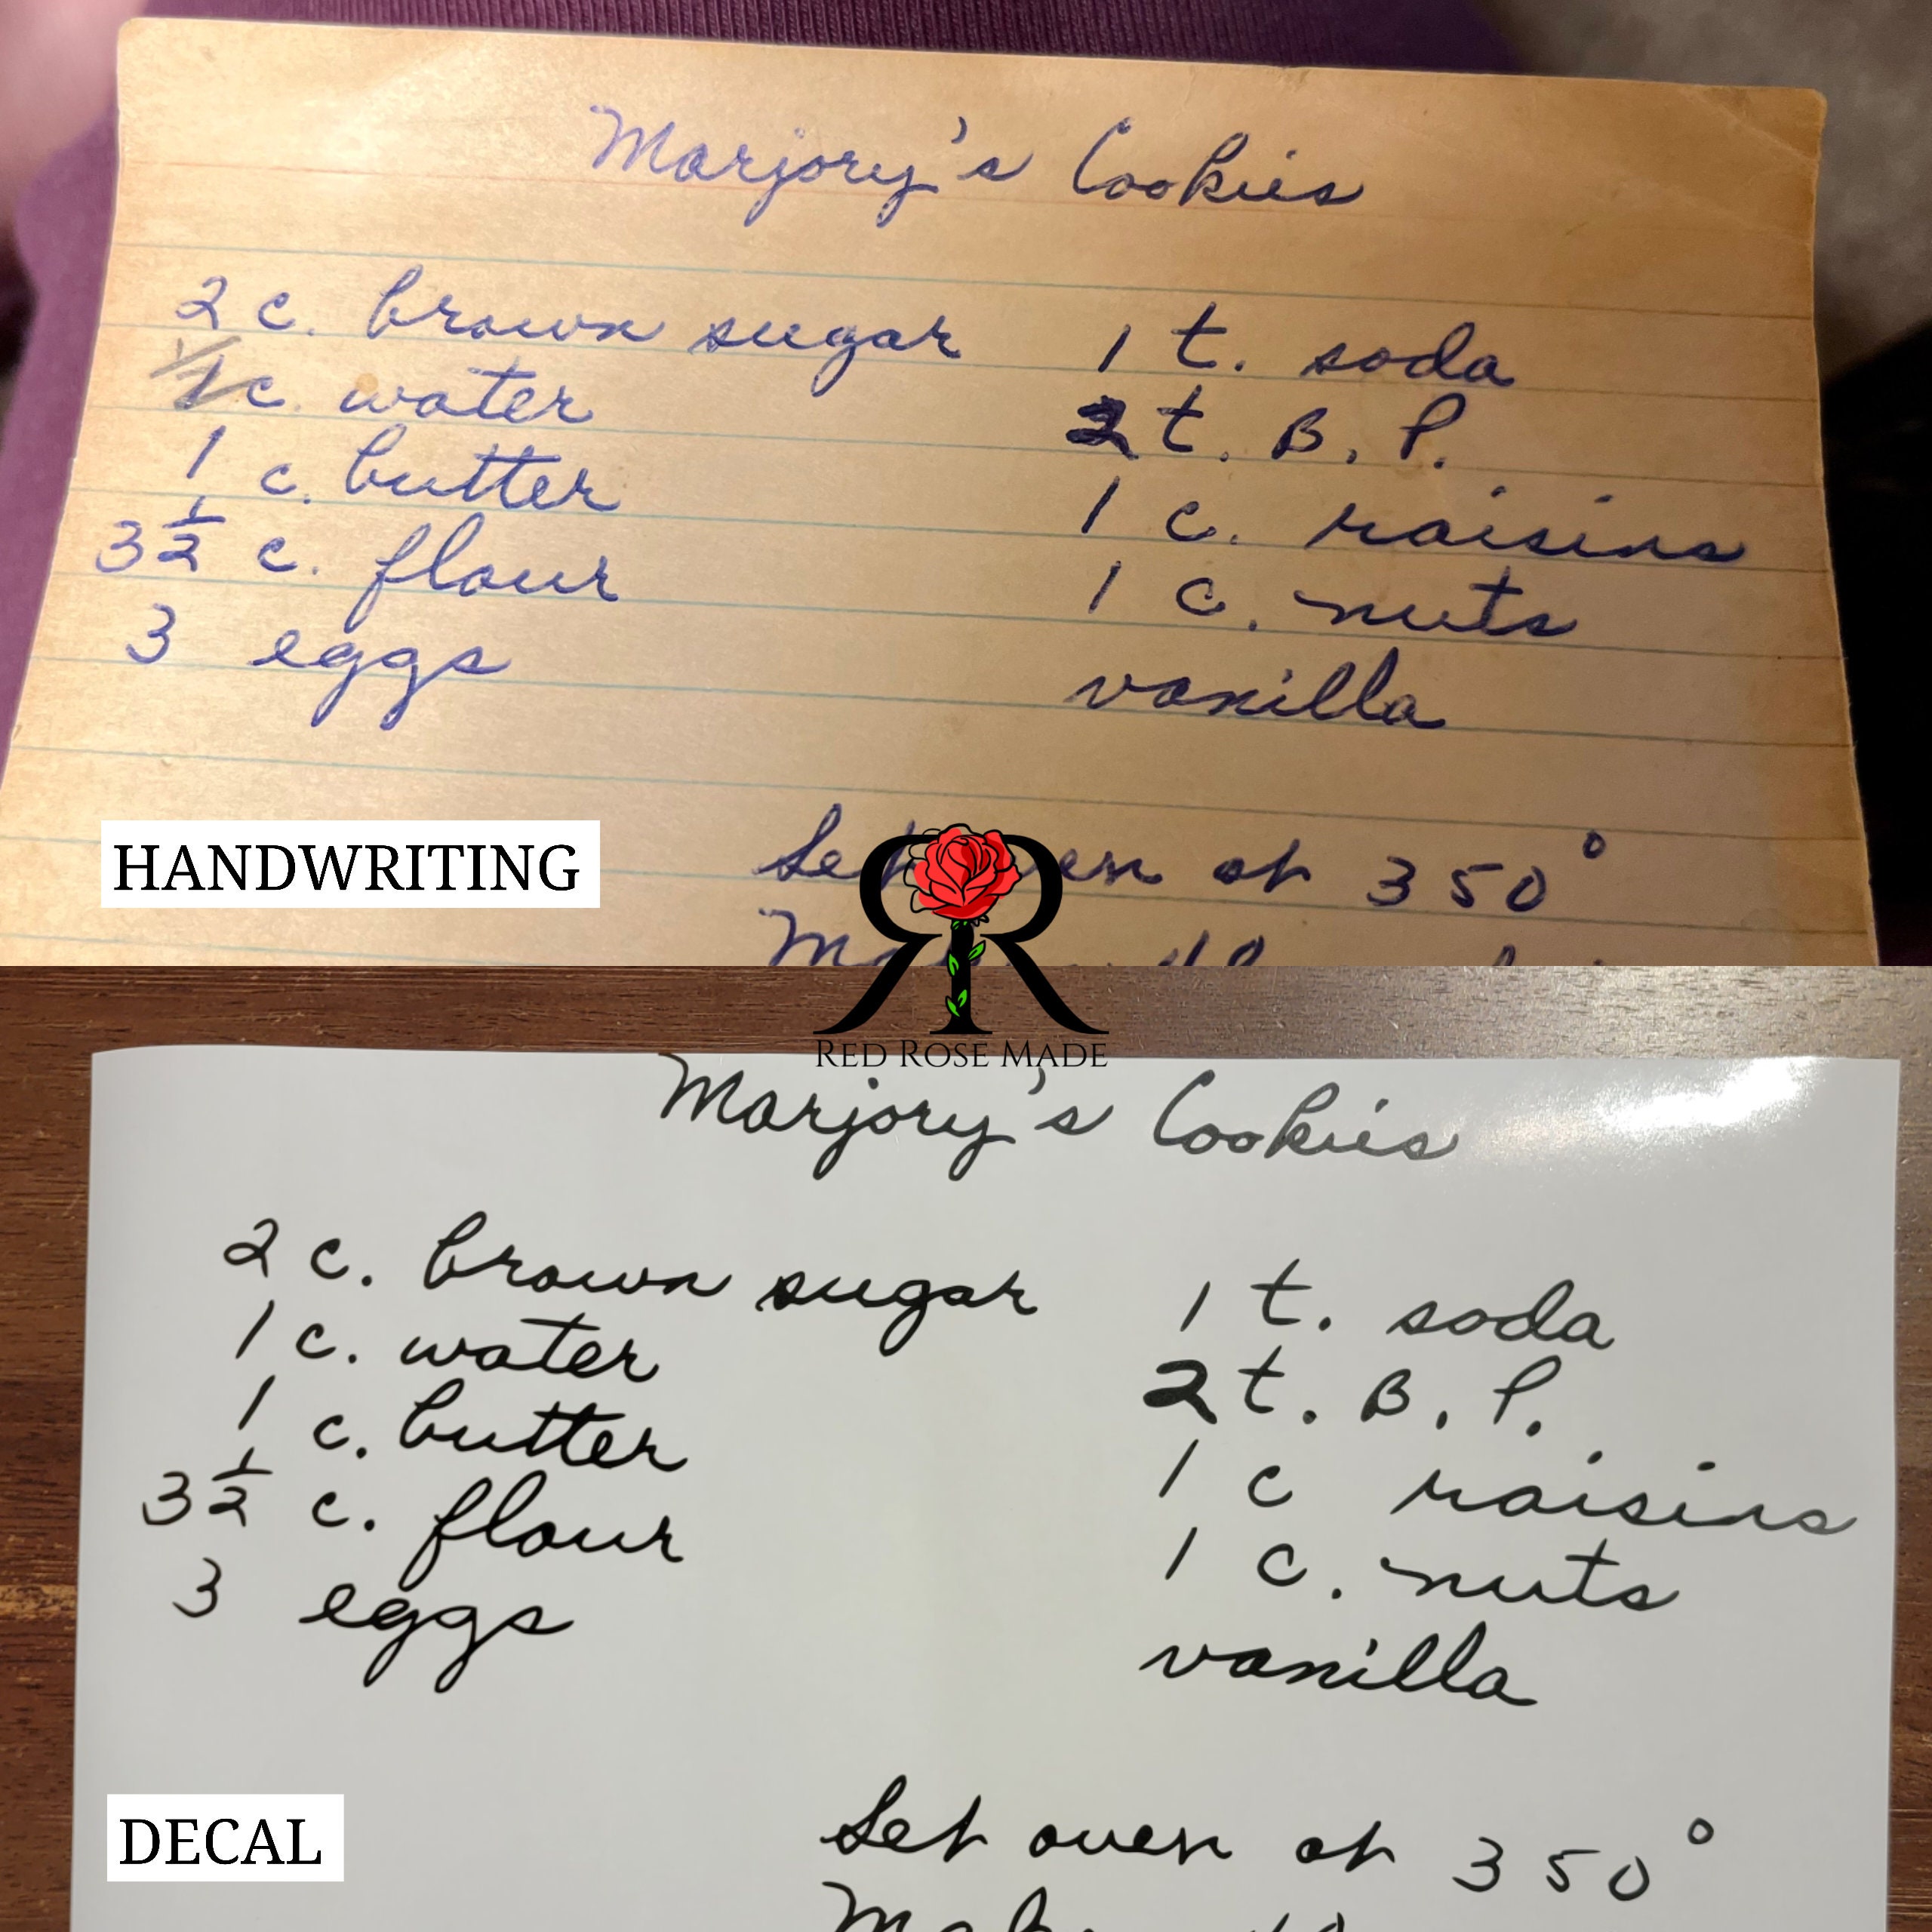 Marjory's Cookies
2 c. brown sugar
c. water
1 c. butter
3 1/2 c. flour
3 eggs
1 t. soda
2 t. B. P.
1 c. raisins
1 c. nuts
vanilla
Set oven at 350°
HANDWRITING
RED ROSE MADE
Marjory's Cookies
2 c. brown sugar
1 c. water
1 c. butter
3 1/2 c. flour
3 eggs
1 t. soda
2 t. B. P.
1 c raisins
1 c. nuts
vanilla
Set oven at 350°
DECAL